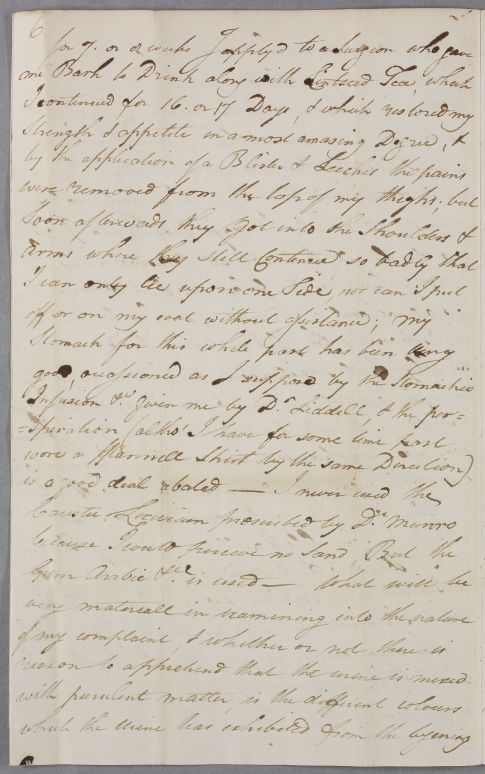 6
for 7. or 8 weeks I apply'd to a Surgeon who gave
me Bark to Drink along with Lintseed Tea, which
I continued for 16. or 17 Days, & which restored my
Strength & appetite in a most amasing Degree, &
by the application of a Blister & Leeches the pains
were removed from the top of my thighs; but
soon afterwards they got into the Shoulders &
arms where they still Continue so badly that
I can only lie upon one Side, nor can I put
off or on my coat without assistance; my
Stomach for this while past has been very
good, occasioned as I suppose by the Stomachic
Infusion &c. given me by Dr. Liddell, & the per=
=spiration (altho' I have for some time past
wore a Flannell Shirt by the same Direction)
is a good deal abated — I never used the
Caustic Lixivium prescribed by Dr. Munro
because I could perceive no Sand, But the
Gum Arabic &c. is used — What will be
very materiall in examining into the nature
of my complaint, & whether or not there is
reason to apprehend that the urine is mixed
with purulent matter, is the different colours
which the urine has exhibited from the begining